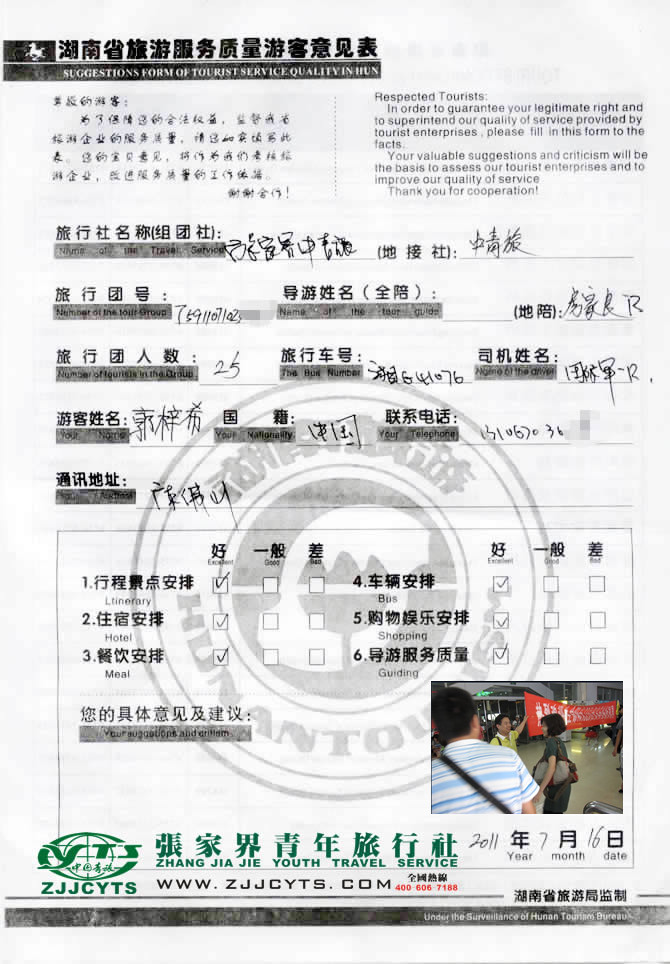 湖南省旅游服务质量游客意见表
SUGGESTIONS FORM OF TOURIST SERVICE QUALITY IN HUN
尊敬的游客:
为了保障您的合法权益，监督我省
旅游企业的服务质量，请您如实填写此
表。您的宝贝意见，将作为我们考核旅
游企业，改进服务质量的工作依据。
谢谢合作!
Respected Tourists:
In order to guarantee your legitimate right and
to superintend our quality of service provided by
tourist enterprises , please fill in this form to the
facts.
Your valuable suggestions and criticism will be
the basis to assess our tourist enterprises and to
improve our quality of service
Thank you for cooperation!
旅行社名称(组团社):
Name of the Travel Service
中青旅
(地接社):
中青旅
旅行团号:
Number of the tour Group
导游姓名(全陪):
Name of the tour guide
(地陪):
旅行团人数:
Number of tourists in the Group
25
旅行车号:
The Bus Number
司机姓名:
Name of the driver
游客姓名:
Your Name
郭梓希
国籍:
Your Nationality
中国
联系电话:
Your Telephone
通讯地址:
广东佛山
好 一般 差
Excellent Good Bad
好 一般 差
Excellent Good Bad
1.行程景点安排 ☑ ☐ ☐
Ltinerary
4.车辆安排 ☑ ☐ ☐
Bus
2.住宿安排 ☑ ☐ ☐
Hotel
5.购物娱乐安排 ☑ ☐ ☐
Shopping
3.餐饮安排 ☑ ☐ ☐
Meal
6.导游服务质量 ☑ ☐ ☐
Guiding
HUNAN TOURISM
您的具体意见及建议:
Your suggestions and critism
ZJJCYTS
張家界青年旅行社
ZHANG JIA JIE YOUTH TRAVEL SERVICE
WWW.ZJJCYTS.COM
全國熱線
400-606-7188
2011 年 7 月 16 日
Year month date
湖南省旅游局监制
Under the Surveillance of Hunan Tourism Bureau